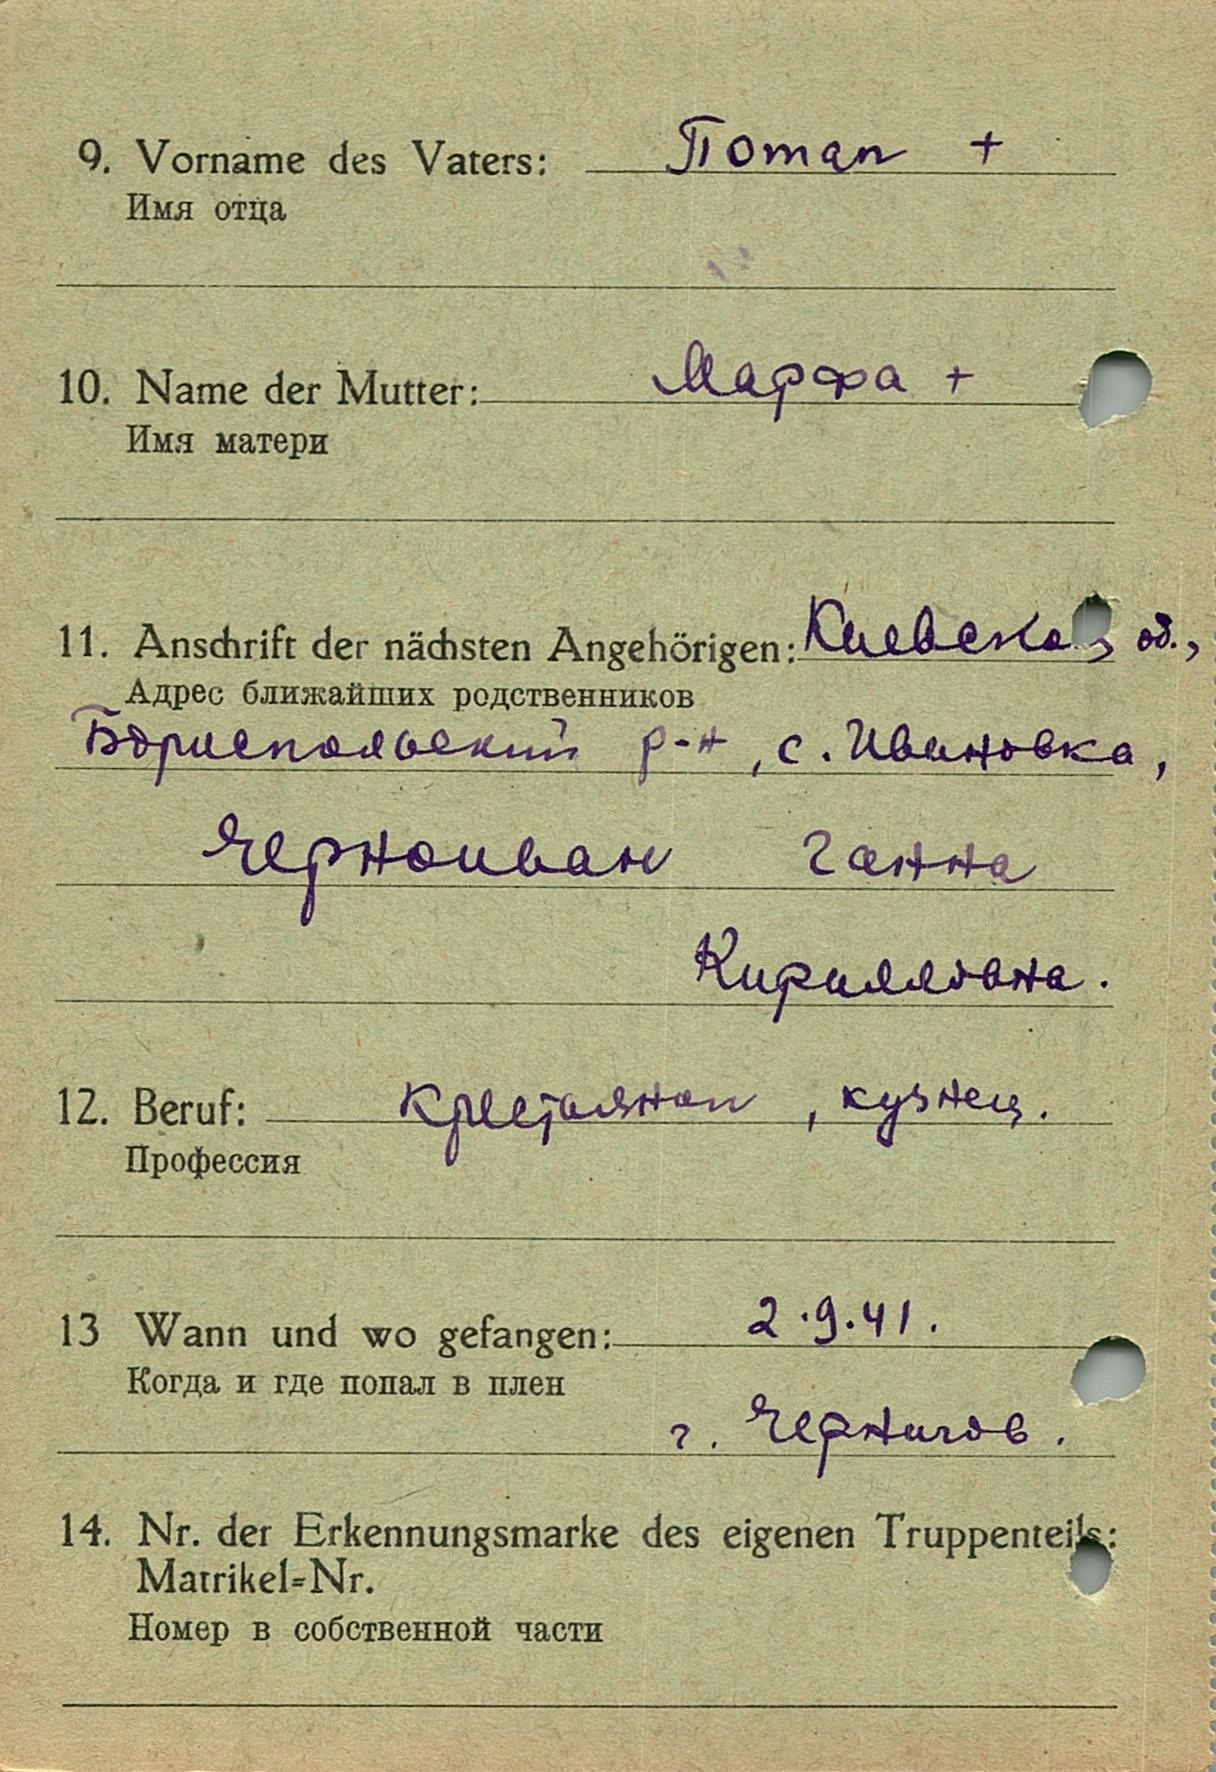 9. Vorname des Vaters: Потап +
Имя отца
10. Name der Mutter: Марфа +
Имя матери
11. Anschrift der nächsten Angehörigen: Киевская об.,
Адрес ближайших родственников
Бориспольский р-н, с. Ивановка,
Черноиван Ганна
Кирилловна.
12. Beruf: Крестьянин, кузнец.
Профессия
13 Wann und wo gefangen: 2.9.41.
Когда и где попал в плен
г. Чернигов.
14. Nr. der Erkennungsmarke des eigenen Truppenteils:
Matrikel=Nr.
Номер в собственной части